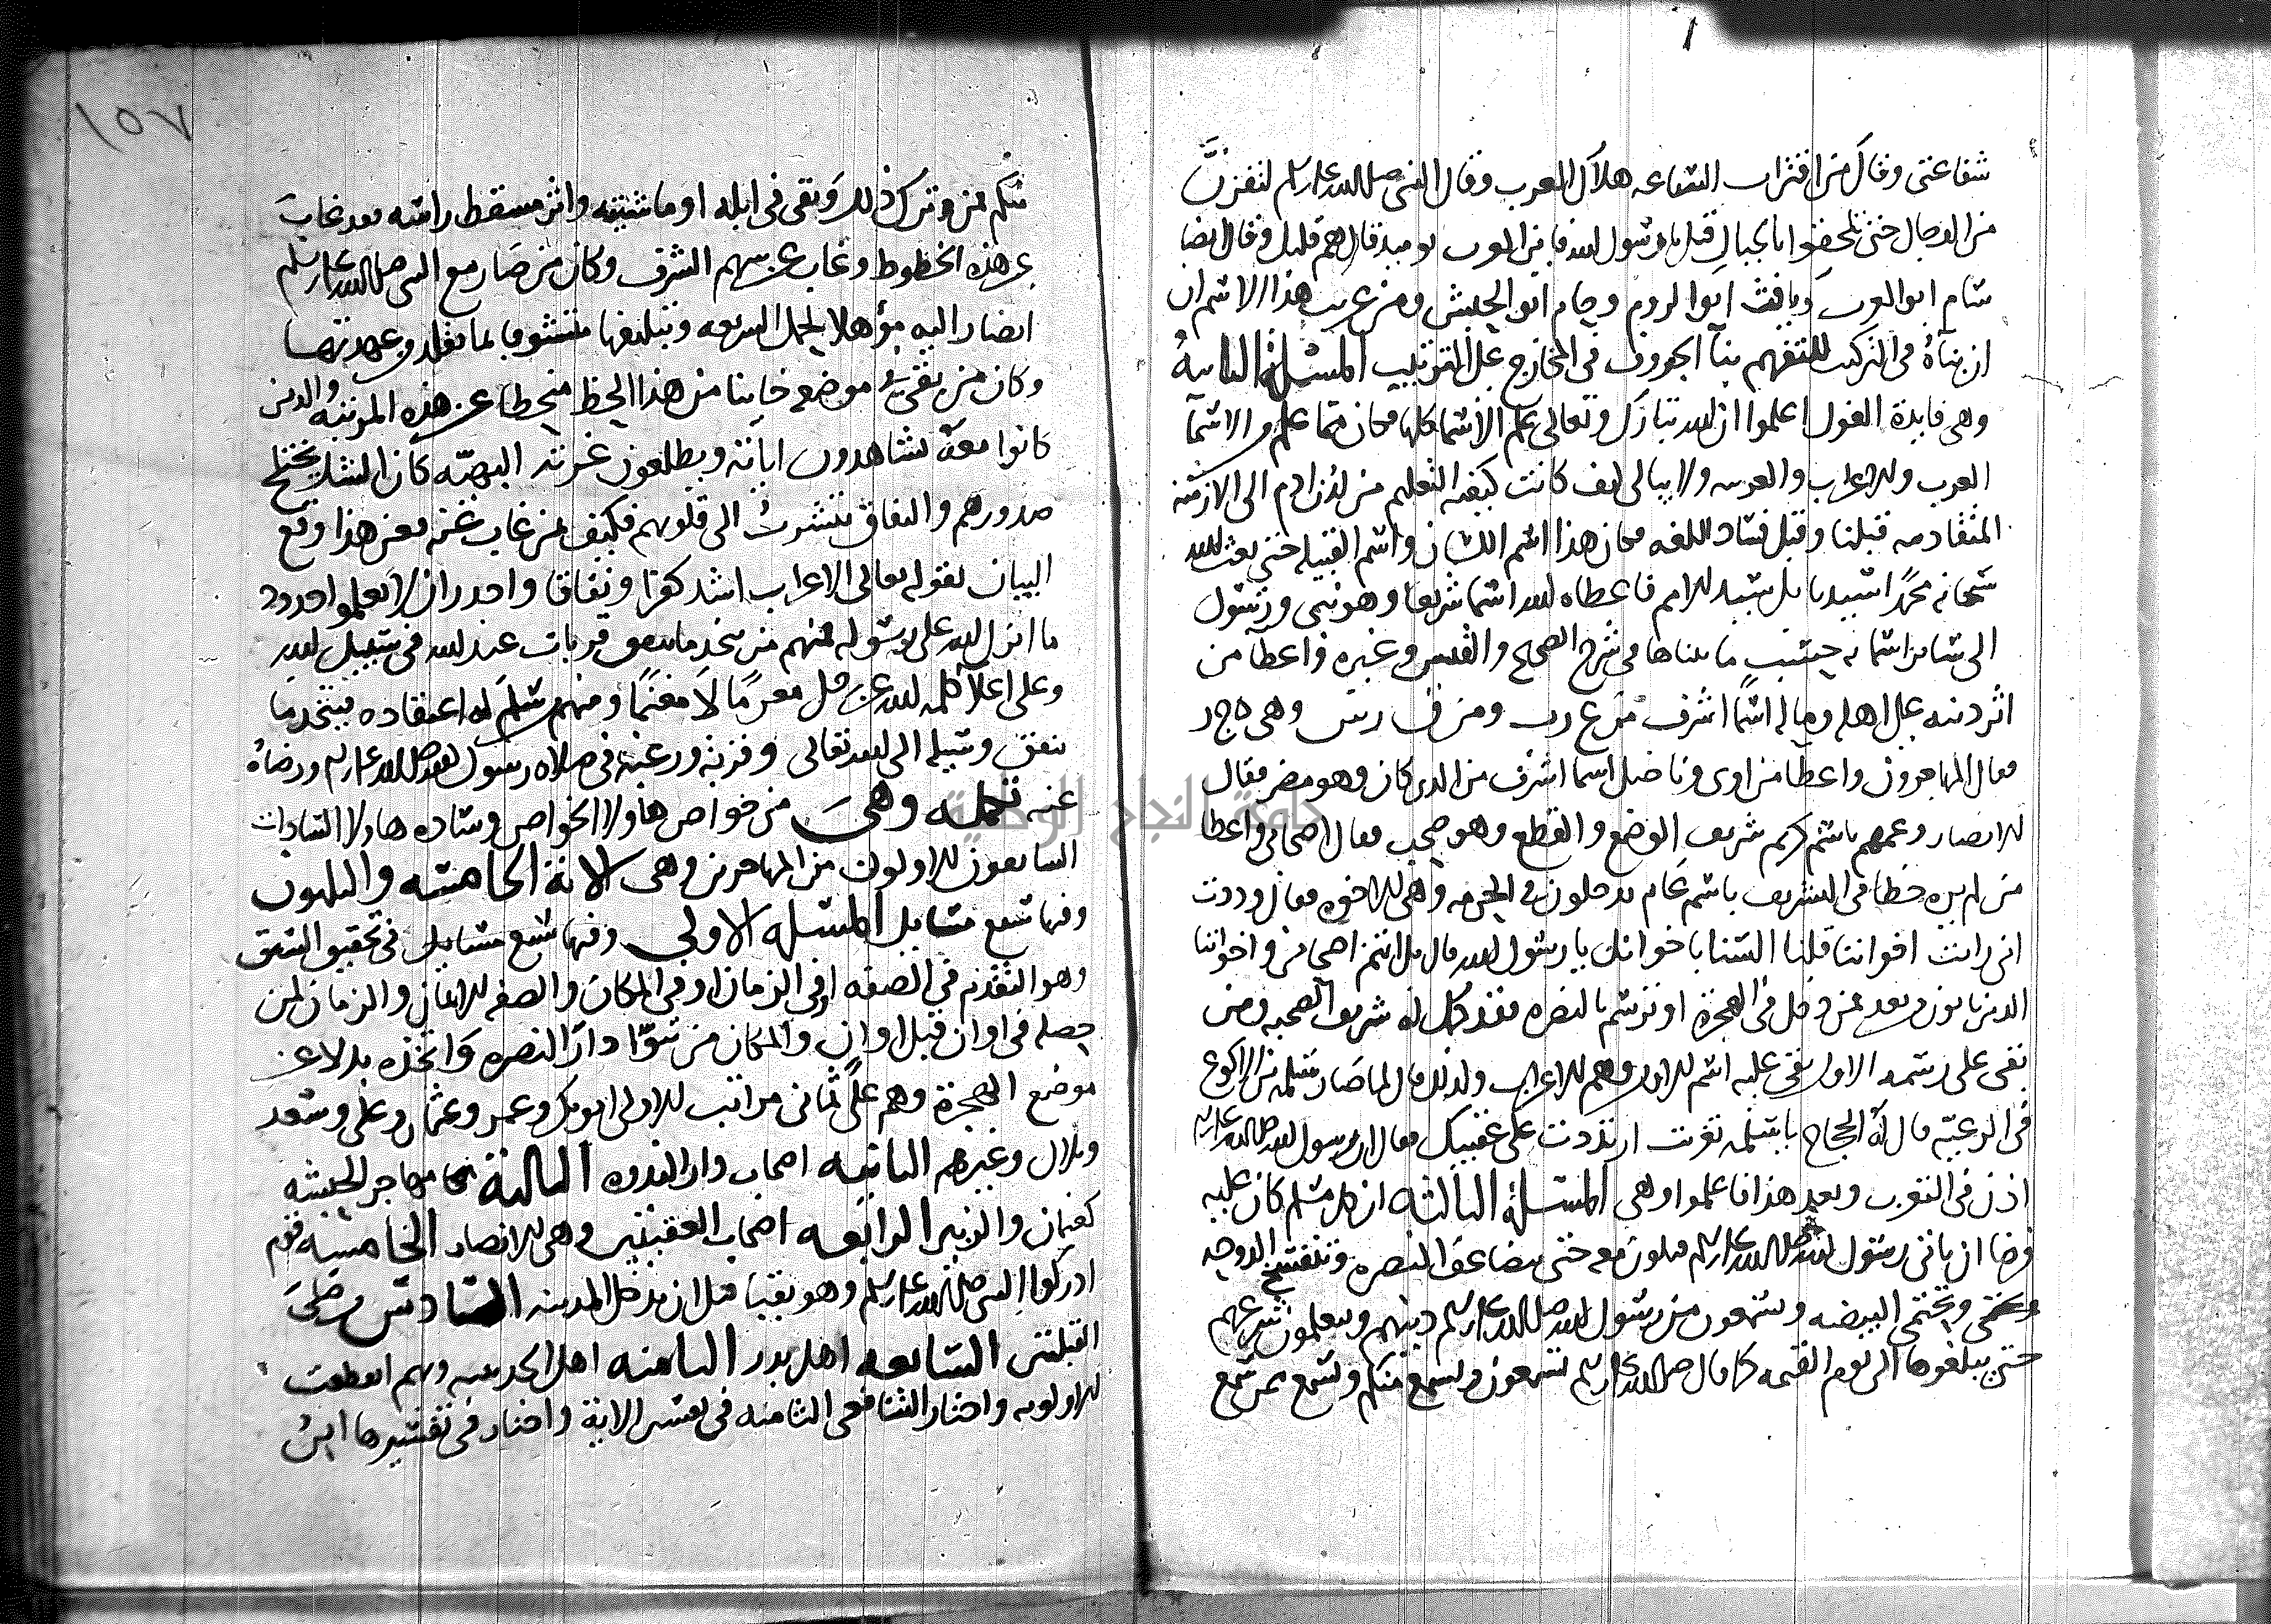 شفاعتى وقال من اقتراب الساعه هلاك العرب وقال النبى صلى الله عليه وسلم لتفرنّ
من الدجال حتى تلحقوا بالجبال قيل يا رسول الله فاين العرب يوميذ قال هم قليل وقال ايضا
سام ابوا العرب ويافث ابوا الروم وحام ابوا الحبش ومن غريب هذا الاسم ان
ان بناه فى التركيب للتفهيم بنآ الحروف فى المخارج على الترتيب المسئلة الثانية
وهى فايدة القول اعلموا ان الله تبارك وتعالى علم الاسما كلها فكان مما علم الاسمآ
العرب والاعراب والعربيه ولا يبالى كيف كانت كيفية التعليم من لدن ادم الى الازمنه
المتقادمه قبلنا وقبل فساد اللغه فكان هذا اسم اللسان واسم القبيله حتى بعث الله
سبحانه محمدا سيدنا بل سيد الامم فاعطاه الله اسما شريفا وهو نبى ورسول
الى ساير اسمايه حسب ما بيناها فى شرح الصحيح والقبس وغيره واعطا من
اثر دينه على اهله وماله اسما اشرف من ع رب ومن ق ر ش وهى ه ج ر
فقال المهاجرون واعطا من اوى وناضل اسما اشرف من الذى كان وهو نصر فقال
الانصار وعمهم باسم كريم شريف الوضع والقطع وهو صحب فقال اصحابى واعطا
من لم يره حظا فى التشريف باسم عام يدخلون فى الحرمه وهى الاخوه فقال وددت
انى رايت اخواننا قلنا السنا باخوانك يا رسول الله قال بل انتم اصحابى واخواننا
الذين ياتون بعد فمن دخل فى الهجرة او ترسم بالنصره فقد كمل له شريف الصحبه ومن
بقى على رسمه الاول بقى عليه اسم الاول وهم الاعراب ولذلك قال لما صار سلمه بن الاكوع
فى الرعيّة قال له الحجاج يا سلمه تعربت ارتددت على عقبيك فقال ان رسول الله صلى الله عليه وسلم
اذن فى التعرب وبعد هذا فاعلموا وهى المسئلة الثالثه ان كل مسلم كان عليه
فرضا ان ياتى رسول الله صلى الله عليه وسلم فيكون معه حتى يتضاعف النصره وتنفسح الدوحه
وتحتمى البيضه ويسمعون من رسول الله صلى الله عليه وسلم دينهم ويتعلمون شرعهم
حتى يبلغوها الى يوم القيمه كما قال صلى الله عليه وسلم تسمعون ويسمع منكم ويسمع ممن سمع
١٥٧
منكم فمن ترك ذلك وبقى فى ابله او ماشيته واثر مسقط راسه فقد غاب
عن هذه الحظوظ وغاب عن سهم الشرف وكان من صار مع النبى صلى الله عليه وسلم
ايضا راليه مؤهلا لحمل الشريعه وتبليغها متشوفا لما تقلد من عهدتها
وكان من بقى فى موضعه خايبا من هذا الحظ منحطا عن هذه المرتبه والذين
كانوا معه يشاهدون اياته ويطلعون غرته البهيّه كان الشك يختلج
صدورهم والنفاق يتسرب الى قلوبهم فكيف بمن غاب عنه فعن هذا وقع
البيان بقوله تعالى الاعراب اشد كفرا ونفاقا واجدر ان لا يعلموا حدود
ما انزل الله على رسوله فمنهم من يتخذ ما ينفق قربات عند الله فى سبيل الله
وعلى اعلا كلمة الله عز وجل مغرمًا لا مغنمًا ومنهم من سلم له اعتقاده فيتخذ ما
ينفق وسيلة الى الله تعالى وقربة ورغبة فى صلاه رسول الله صلى الله عليه وسلم ورضاه
عنه تكمله وهى من خواص هاولا الخواص وساده هاولا السادات
السابقون الاولون من المهاجرين وهى الاية الخامسه والثلثون
وفيها سبع مسايل المسئله الاولى وفيها سبع مسايل فى تحقيق السبق
وهو التقدم فى الصفه او فى الزمان او فى المكان والصفه الايمان والزمان لمن
حصله فى اوان قبل اوان والمكان من تبوّا دار النصره واتخذه بدلا عن
موضع الهجرة وهم على ثمانى مراتب الاولى ابو بكر وعمر وعثمان وعلى وسعد
وبلال وغيرهم الثانيه اصحاب دار الندوه الثالثة مهاجر الحبشه
كعثمان والزبير الرابعه اصحاب العقبتين وهى الانصار الخامسه قوم
ادركوا النبى صلى الله عليه وسلم وهو بقبا قبل ان يدخل المدينه السادس من صلى
القبلتين السابعه اهل بدر الثامنه اهل الحديبيه وبهم انقطعت
الاولويه واختار الشافعى الثامنه فى تفسير الاية واختار فى تفسيرها ابن